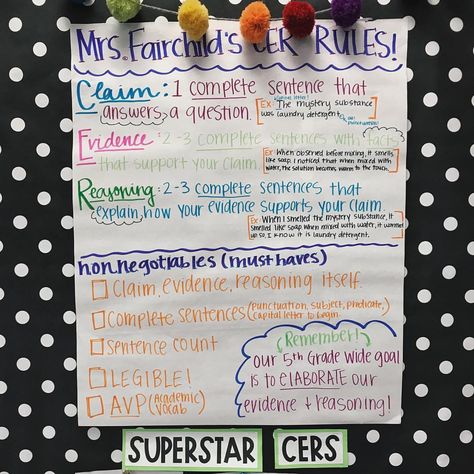 Mrs. Fairchild's CER RULES!
Claim: 1 complete sentence that
answers a question.
Ex: The mystery substance
was laundry detergent.
capital letter!
punctuation!
Evidence: 2-3 complete sentences with facts
that support your claim.
Ex: When observed before mixing, it smells
like soap. I noticed that when mixed with
water, the solution becomes warm to the touch.
Reasoning: 2-3 complete sentences that
explain how your evidence supports your claim.
Ex: When I smelled the mystery substance, it
smelled like soap. When mixed with water, it warmed
up so, I know it is laundry detergent.
nonnegotiables (must haves)
Claim, evidence, reasoning itself.
Complete sentences (punctuation, subject, predicate,
capital letter to begin.
Sentence count
LEGIBLE!
AVP (Academic
vocab)
Remember!
our 5th Grade wide goal
is to ELABORATE our
evidence + reasoning!
SUPERSTAR CERS